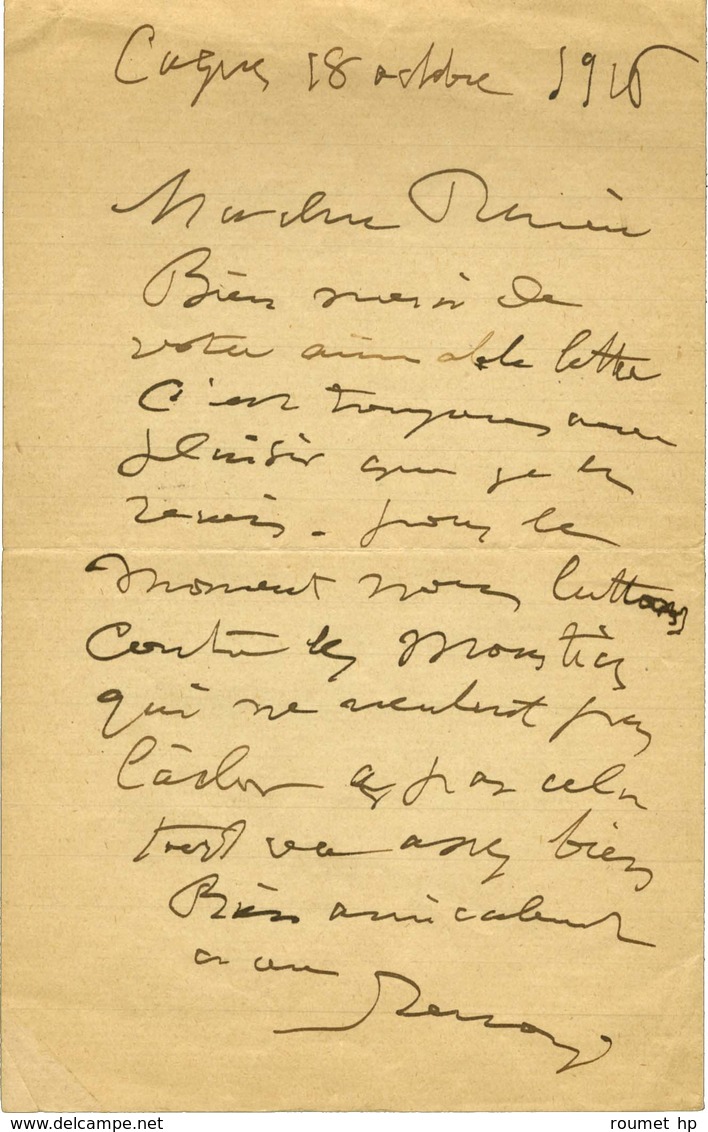 Cagnes 18 octobre 1916
Madame Rivière
Bien merci de
votre aimable lettre
C'est toujours avec
plaisir que je les
reçois. pour le
moment nous luttons
contre les moustiques
qui ne veulent pas
lâcher à part cela
tout va assez bien
Bien amicalement
a vous
Renoir
www.delcampe.net
roumet hp